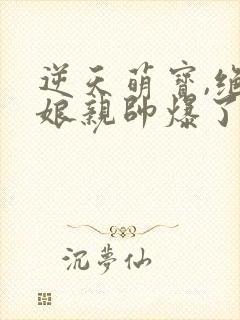 逆天萌寶,絕
娘親帥爆了
沉夢仙